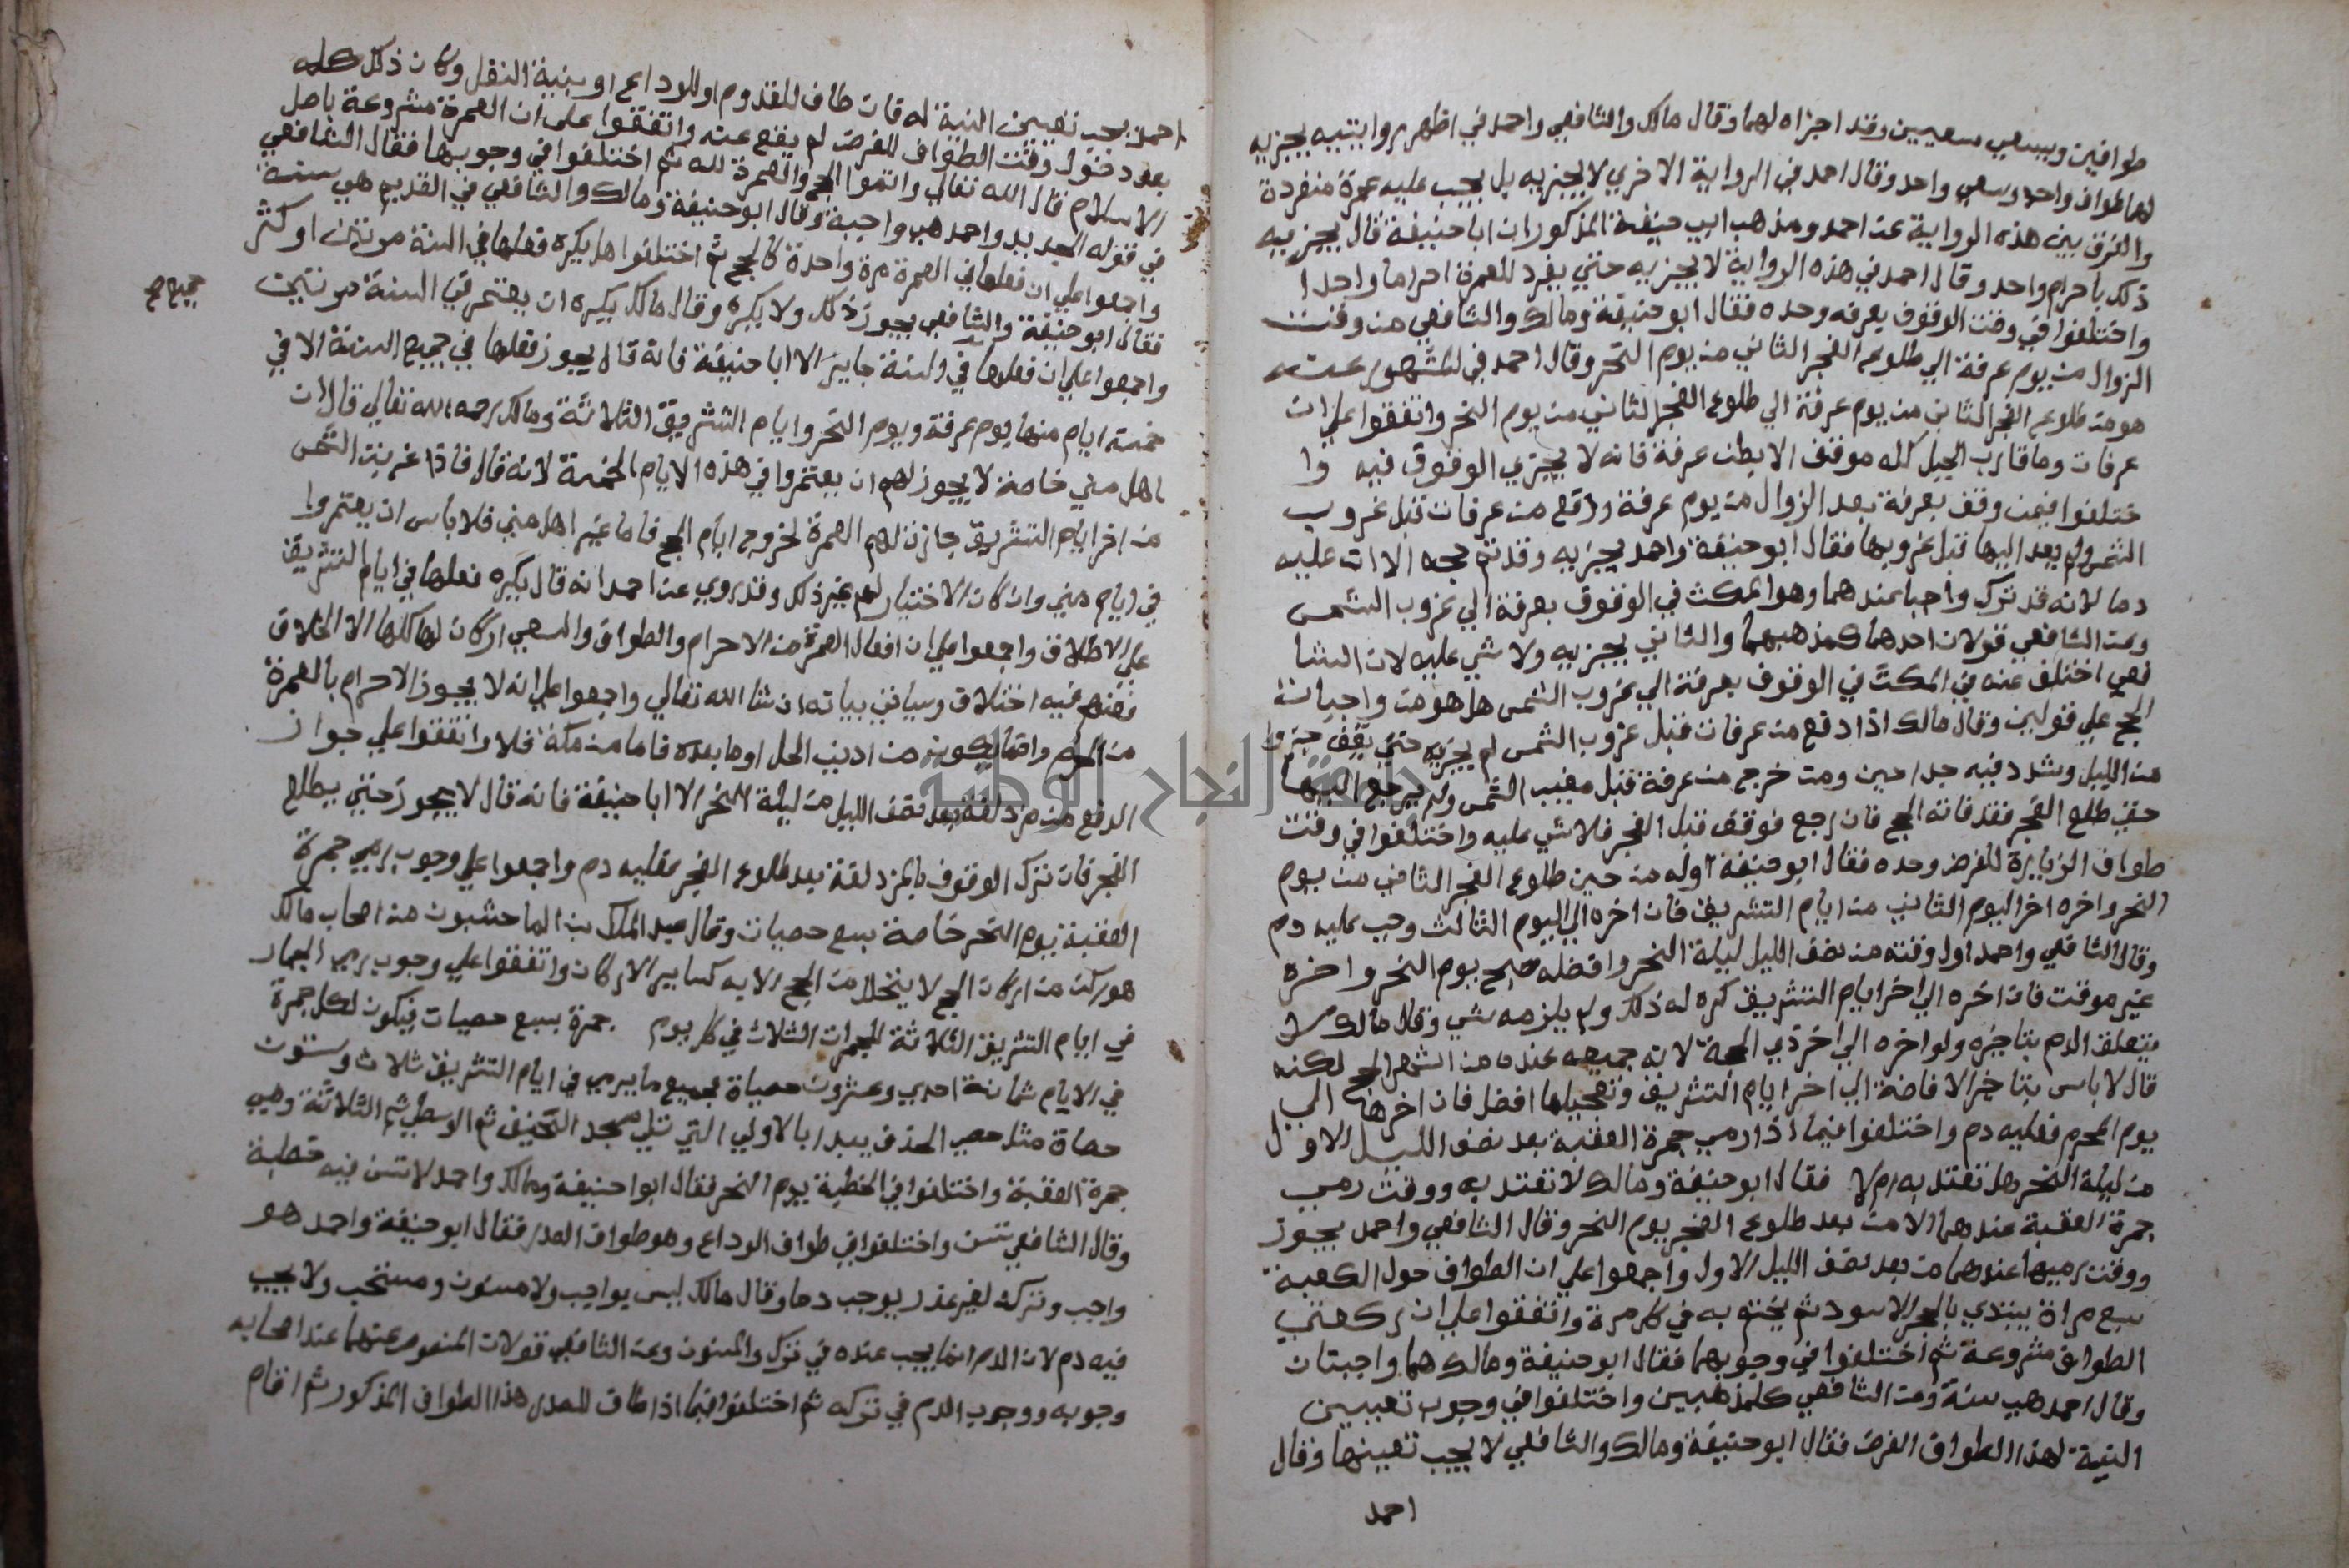 طوافين ويسعي سعيين وقد اجزاه لهما وقال مالك والشافعي واحمد في اظهر روايتيه يجزيه
لهما طواف واحد وسعي واحد وقال احمد في الرواية الاخري لا يجزيه بل يجب عليه عمرة منفردة
والفرق بين هذه الرواية عن احمد ومذهب ابي حنيفة المذكور ان ابا حنيفة قال يجزيه
ذلك باحرام واحد وقال احمد في هذه الرواية لا يجزيه حتي يفرد للعمرة احراما واحدا
واختلفوا في وقت الوقوف بعرفه وحده فقال ابو حنيفة ومالك والشافعي من وقت
الزوال من يوم عرفة الي طلوع الفجر الثاني من يوم النحر وقال احمد في المشهور عنه
هو من طلوع الفجر الثاني من يوم عرفة الي طلوع الفجر الثاني من يوم النحر واتفقوا علي ان
عرفات وما قارب الجبل كله موقف الا بطن عرفة فانه لا يجزي الوقوف فيه وا
ختلفوا فيمن وقف بعرفة بعد الزوال من يوم عرفة ودفع من عرفات قبل غروب
الشمس ولم يعد اليها قبل غروبها فقال ابو حنيفة واحمد يجزيه وقد تم حجه الا ان عليه
دما لانه قد ترك واجبا عندهما وهو المكث في الوقوف بعرفة الي غروب الشمس
وعن الشافعي قولان احدهما كمذهبهما والثاني يجزيه ولا شي عليه لان الشا
فعي اختلف عنه في المكث في الوقوف بعرفة الي غروب الشمس هل هو من واجبات
الحج علي قولين وقال مالك اذا دفع من عرفات قبل غروب الشمس لم يجزيه حتي يقف جزوا
من الليل وشدد فيه جدا حين ومن خرج من عرفة قبل مغيب الشمس ولم يرجع اليها
حتي طلع الفجر فقد فاته الحج فان رجع فوقف قبل الفجر فلا شي عليه واختلفوا في وقت
طواف الزيارة للفرض وحده فقال ابو حنيفة اوله من حين طلوع الفجر الثاني من يوم
النحر واخره اخر اليوم الثاني من ايام التشريق فان اخره الي اليوم الثالث وجب عليه دم
وقال الشافعي واحمد اول وقته من نصف الليل ليلة النحر وافضله ضحي يوم النحر واخره
غير موقت فان اخره الي اخر ايام التشريق كره له ذلك ولم يلزمه شي وقال مالك لا
يتعلق الدم بتاخره ولو اخره الي اخر ذي الحجة لانه جميعه عنده من اشهر الحج لكنه
قال لا باس بتاخير الافاضة الي اخر ايام التشريق وتعجيلها افضل فان اخرها الي
يوم المحرم فعليه دم واختلفوا فيما اذا رمي جمرة العقبة بعد نصف الليل الاول
من ليلة النحر هل تعتد به ام لا فقال ابو حنيفة ومالك لا تعتد به ووقت رمي
جمرة العقبة عندهما الا من بعد طلوع الفجر يوم النحر وقال الشافعي واحمد يجوز
ووقت رميها عندهما من بعد نصف الليل الاول واجمعوا علي ان الطواف حول الكعبة
سبع مراة يبتدي بالحجر الاسود ثم يختم به في كل مرة واتفقوا علي ان ركعتي
الطواف مشروعة ثم اختلفوا في وجوبهما فقال ابو حنيفة ومالك هما واجبتان
وقال احمد هي سنة وعن الشافعي كالمذهبين واختلفوا في وجوب تعيين
النية لهذا الطواف الفرض فقال ابو حنيفة ومالك والشافعي لا يجب تعيينها وقال
احمد
احمد يجب تعيين النية له فان طاف للقدوم او للوداع او بنية النفل وكان ذلك كله
بعد دخول وقت الطواف للفرض لم يقع عنه واتفقوا علي ان العمرة مشروعة باصل
الاسلام قال الله تعالي واتموا الحج والعمرة لله ثم اختلفوا في وجوبها فقال الشافعي
في قوله الجديد واحمد هي واجبة وقال ابو حنيفة ومالك والشافعي في القديم هي سنة
واجمعوا علي ان فعلها في العمرة مرة واحدة كالحج ثم اختلفوا هل يكره فعلها في السنة مرتين او كثر
فقال ابو حنيفة والشافعي يجوز ذلك ولا يكره وقال مالك يكره ان يعتمر في السنة مرتين
واجمعوا علي ان فعلها في السنة جايز الا ابا حنيفة فانه قال يجوز فعلها في جميع السنة الا في
جميع
خمسة ايام منها يوم عرفة ويوم النحر وايام التشريق الثلاثة ومالك رحمه الله تعالي قال ان
اهل مني خاصة لا يجوز لهم ان يعتمروا في هذه الايام الخمسة لانه قال فاذا غربت الشمس
من اخر ايام التشريق جازت لهم العمرة لخروج ايام الحج فاما غير اهل مني فلا باس ان يعتمروا
في ايام مني وان كان الاختيار لهم غير ذلك وقد روي عن احمد انه قال يكره فعلها في ايام التشريق
علي الاطلاق واجمعوا علي ان افعال العمرة من الاحرام والطواف والسعي اركان لها كلها الا الحلاق
فعنهم فيه اختلاف وسياتي بيانه ان شا الله تعالي واجمعوا علي انه لا يجوز الاحرام بالعمرة
من الحرم وانما يكون من ادني الحل او ما بعده فاما من مكة فلا واتفقوا علي جواز
الدفع من مزدلفة بعد نصف الليل من ليلة النحر الا ابا حنيفة فانه قال لا يجوز حتي يطلع
الفجر فان ترك الوقوف بالمزدلفة بعد طلوع الفجر فعليه دم واجمعوا علي وجوب رمي جمرة
العقبة يوم النحر خاصة بسبع حصيات وقال عبد الملك بن الماحشون من اصحاب مالك
هو ركن من اركان الحج لا يتحلل من الحج الا به كساير الاركان واتفقوا علي وجوب رمي الجمار
في ايام التشريق الثلاثة الجمرات الثلاث في كل يوم جمرة بسبع حصيات فيكون لكل جمرة
في الايام ثمانة احدي وعشرون حصاة فجميع ما يرمي في ايام التشريق ثلاث وستون
حصاة مثل حصي الحذف يبدا بالاولي التي تلي مسجد الخيف ثم الوسطي ثم الثلاثة وهي
جمرة العقبة واختلفوا في الخطبة يوم النحر فقال ابوا حنيفة ومالك واحمد لا تسن فيه خطبة
وقال الشافعي تسن واختلفوا في طواف الوداع وهو طواف الصدر فقال ابو حنيفة واحمد هو
واجب وتركه لغير عذر يوجب دما وقال مالك ليس بواجب ولا مسنون ومستحب ولا يجب
فيه دم لان الدم انما يجب عنده في ترك والمسنون وعن الشافعي قولان المنصوص عنهما عند اصحابه
وجوبه ووجوب الدم في تركه ثم اختلفوا فيما اذا طاف للصدر هذا الطواف المذكور ثم اقام
جامعة النجاح الوطنية